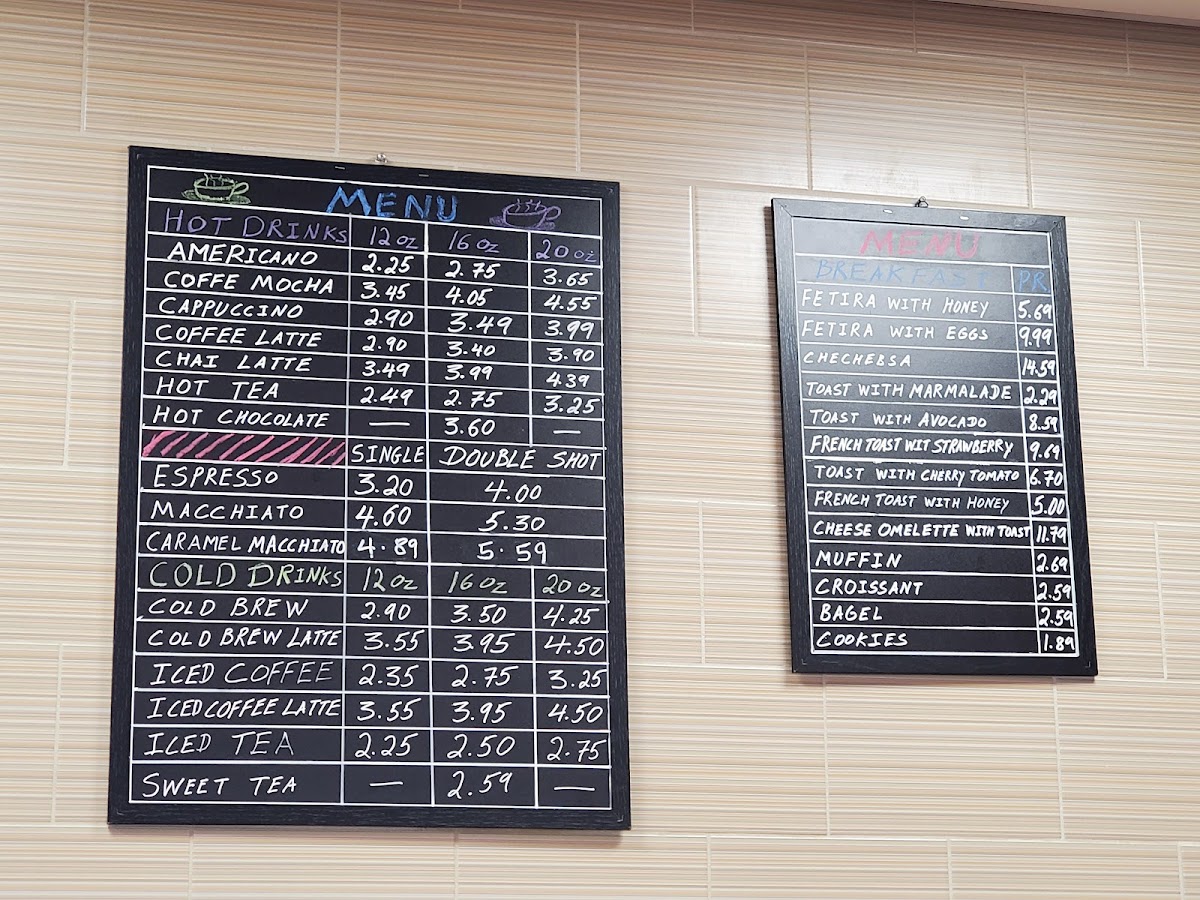 MENU
HOT DRINKS 12 oz 16 oz 20 oz
AMERICANO 2.25 2.75 3.65
COFFE MOCHA 3.45 4.05 4.55
CAPPUCCINO 2.90 3.49 3.99
COFFEE LATTE 2.90 3.40 3.90
CHAI LATTE 3.49 3.99 4.39
HOT TEA 2.49 2.75 3.25
HOT CHOCOLATE — 3.60 —
SINGLE DOUBLE SHOT
ESPRESSO 3.20 4.00
MACCHIATO 4.60 5.30
CARAMEL MACCHIATO 4.89 5.59
COLD DRINKS 12 oz 16 oz 20 oz
COLD BREW 2.90 3.50 4.25
COLD BREW LATTE 3.55 3.95 4.50
ICED COFFEE 2.35 2.75 3.25
ICED COFFEE LATTE 3.55 3.95 4.50
ICED TEA 2.25 2.50 2.75
SWEET TEA — 2.59 —
MENU
BREAKFAST PR
FETIRA WITH HONEY 5.69
FETIRA WITH EGGS 9.99
CHECHEBSA 14.59
TOAST WITH MARMALADE 2.29
TOAST WITH AVOCADO 8.59
FRENCH TOAST WIT STRAWBERRY 9.69
TOAST WITH CHERRY TOMATO 6.70
FRENCH TOAST WITH HONEY 5.00
CHEESE OMELETTE WITH TOAST 11.79
MUFFIN 2.69
CROISSANT 2.59
BAGEL 2.59
COOKIES 1.89